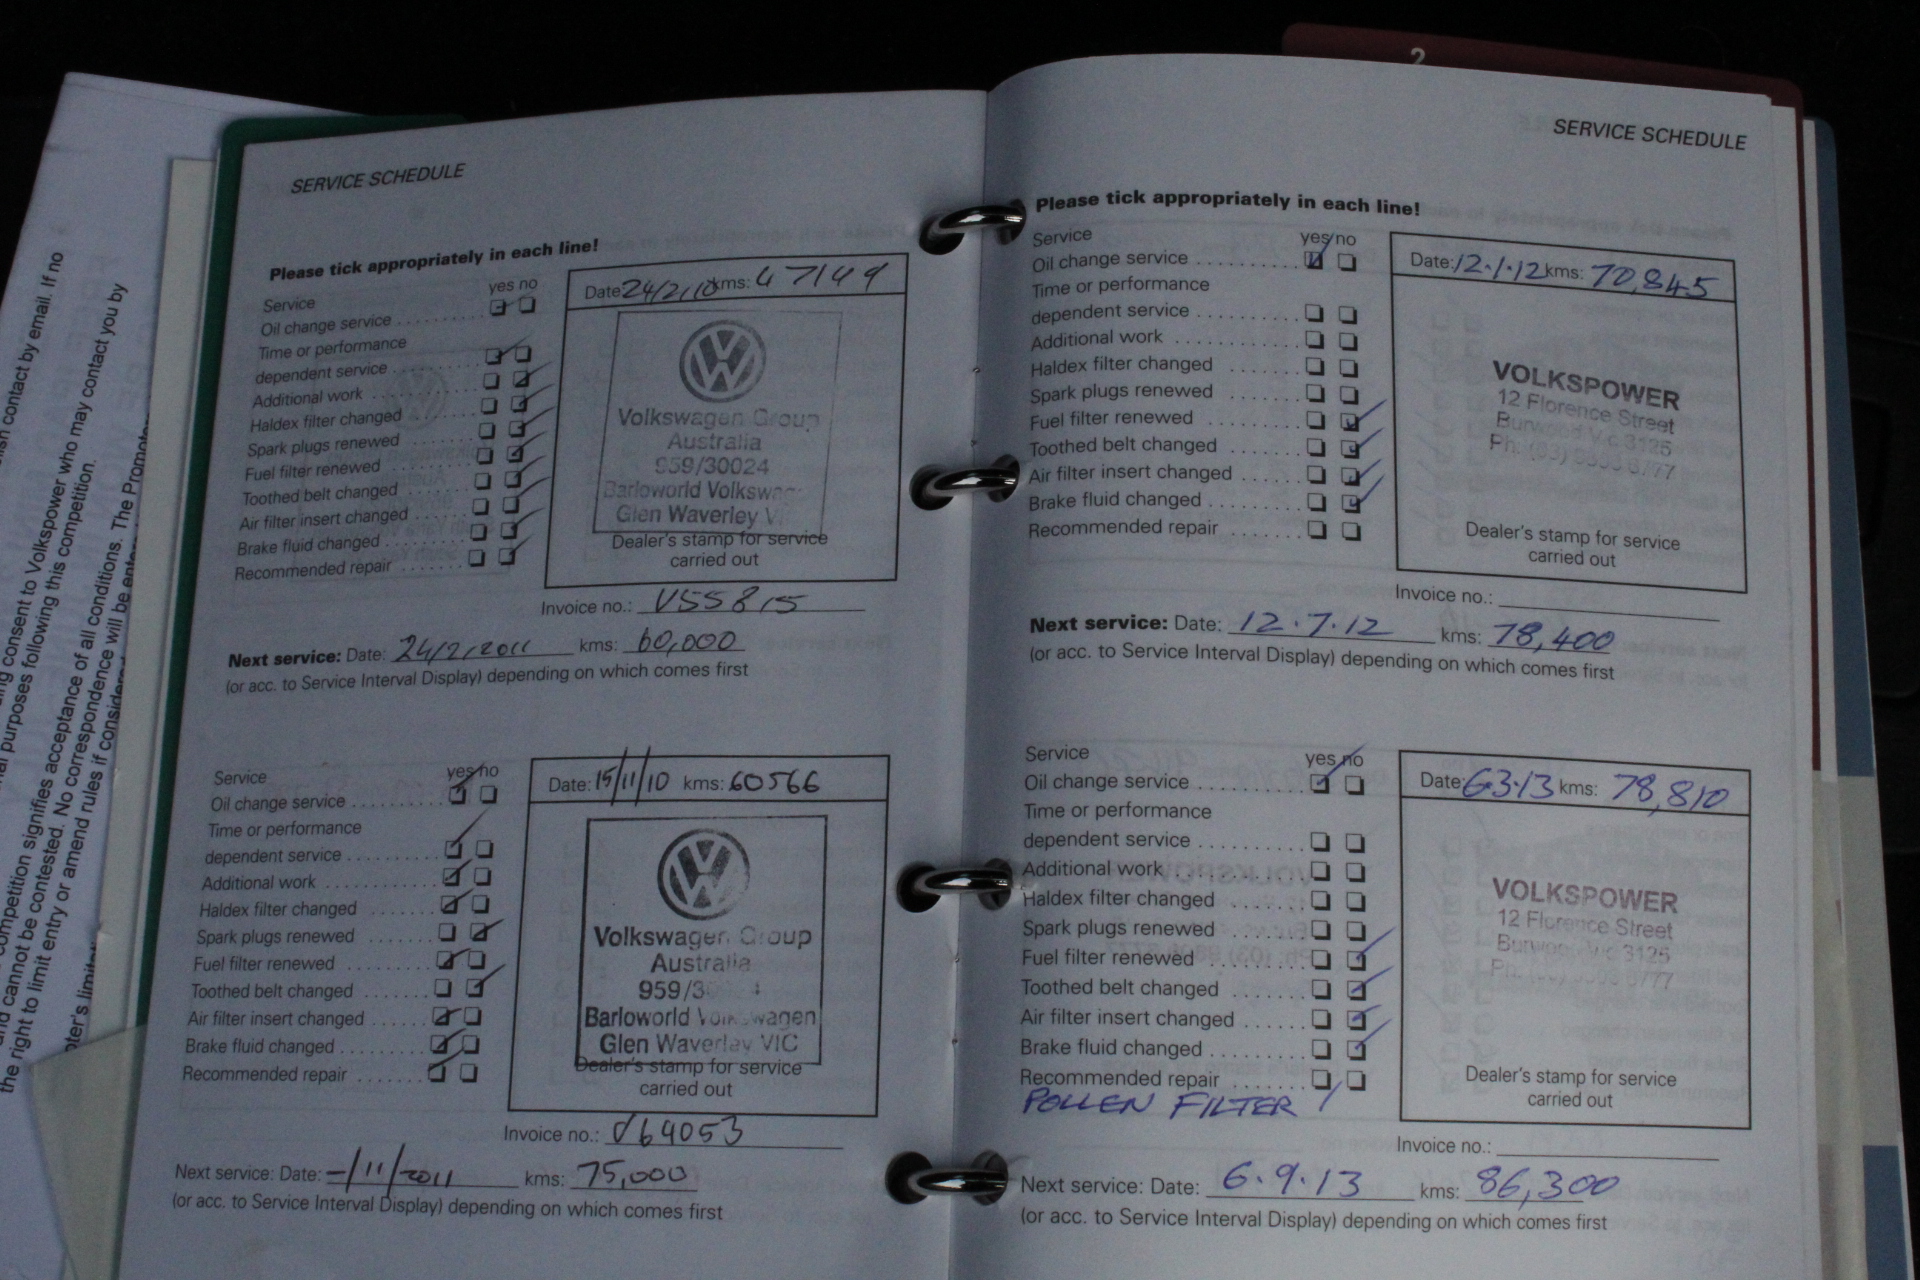 contact by email. If no
consent to Volkspower who may contact you by
purposes following this competition.
competition signifies acceptance of all conditions. The
and cannot be contested. No correspondence will be
the right to limit entry or amend rules if
SERVICE SCHEDULE
Please tick appropriately in each line!
Service yes no
Oil change service
Time or performance
dependent service
Additional work
Haldex filter changed
Spark plugs renewed
Fuel filter renewed
Toothed belt changed
Air filter insert changed
Brake fluid changed
Recommended repair
Date: 24/2/10 kms: 47149
Volkswagen Group
Australia
959/30024
Barloworld Volkswagen
Glen Waverley
Dealer's stamp for service
carried out
Invoice no.: V55815
Next service: Date: 24/2/2011 kms: 60,000
(or acc. to Service Interval Display) depending on which comes first
Service yes no
Oil change service
Time or performance
dependent service
Additional work
Haldex filter changed
Spark plugs renewed
Fuel filter renewed
Toothed belt changed
Air filter insert changed
Brake fluid changed
Recommended repair
Date: 15/11/10 kms: 60566
Volkswagen Group
Australia
Barloworld Volkswagen
Glen Waverley VIC
Dealer's stamp for service
carried out
Invoice no.: V64053
Next service: Date: -/11/2011 kms: 75,000
(or acc. to Service Interval Display) depending on which comes first
2
SERVICE SCHEDULE
Please tick appropriately in each line!
Service yes/no
Oil change service
Time or performance
dependent service
Additional work
Haldex filter changed
Spark plugs renewed
Fuel filter renewed
Toothed belt changed
Air filter insert changed
Brake fluid changed
Recommended repair
Date: 12.1.12 kms: 70,845
VOLKSPOWER
12 Florence Street
Burwood Vic 3125
Dealer's stamp for service
carried out
Invoice no.:
Next service: Date: 12.7.12 kms: 78,400
(or acc. to Service Interval Display) depending on which comes first
Service yes no
Oil change service
Time or performance
dependent service
Additional work
Haldex filter changed
Spark plugs renewed
Fuel filter renewed
Toothed belt changed
Air filter insert changed
Brake fluid changed
Recommended repair
POLLEN FILTER
Date: 6.3.13 kms: 78,810
VOLKSPOWER
12 Florence Street
Burwood Vic 3125
Dealer's stamp for service
carried out
Invoice no.:
Next service: Date: 6.9.13 kms: 86,300
(or acc. to Service Interval Display) depending on which comes first